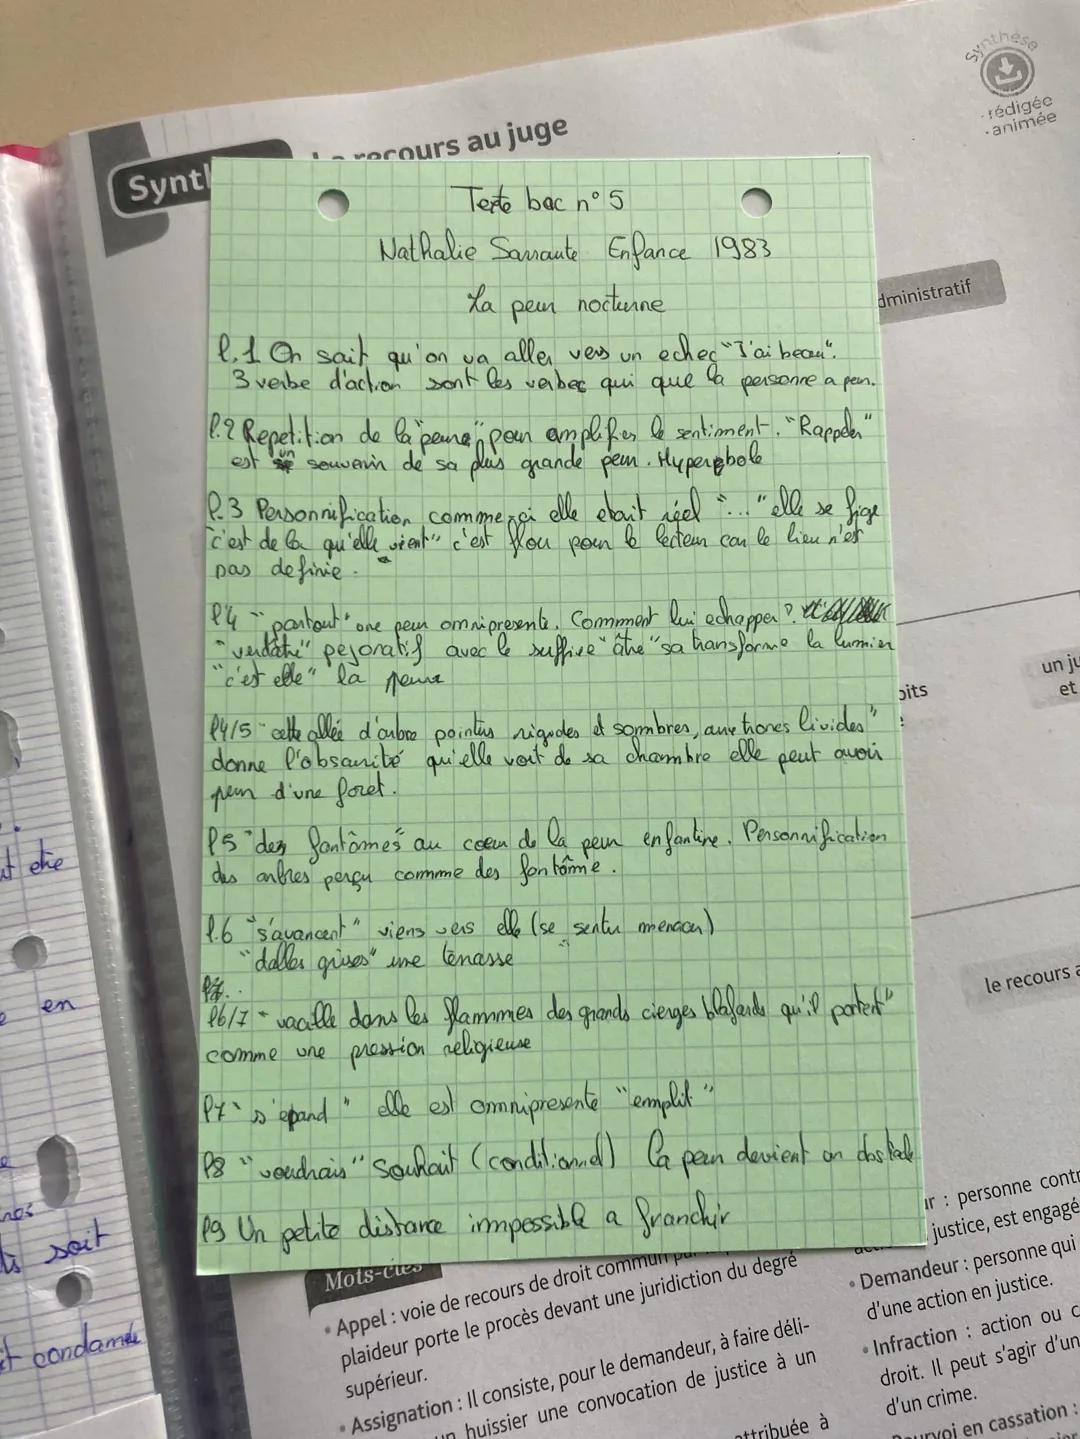 Synthèse
rédigée
animée
Synt
recours au juge
dministratif
Texte bac n° 5
Nathalie Sarraute Enfance 1983
La peur nocturne
l.1 On sait qu'on va aller vers un echec "J'ai beau".
3 verbe d'action sont les verbes qui que la personne a peur.
l.2 Repetition de la "peur" pour amplifier le sentiment. "Rappeler"
est un souvenir de sa plus grande peur. Hyperbole
l.3 Personnification comme si elle etait réel "..." elle se fige
"c'est de là qu'elle vient" c'est flou pour le lecteur car le lieu n'est
pas definie.
l4 "partout" une peur omnipresente. Comment lui echapper?
"verdâtre" pejoratif avec le suffixe "âtre" sa transforme la lumier
"c'est elle" la peur
l4/5 "cette allée d'arbre pointus rigides et sombres, aux troncs livides"
donne l'obsurité qu'elle voit de sa chambre elle peut avoir
peur d'une foret.
l5 "des fantômes" au coeur de la peur enfantine. Personnification
des arbres perçu comme des fantôme.
l.6 "s'avancent" viens vers elle (se sentir menacer)
"dalles grises" une terrasse
l6/7 "vacille dans les flammes des grands cierges blafards qu'il portent"
comme une pression religieuse
l7 "s'epand" elle est omnipresente "emplit"
l8 "voudrais" Souhait (conditionnel) la peur devient un obstacle
l9 Un petite distance impossible a franchir
oits
un ju
et
le recours a
t etre
en
soit
t condamné
Mots-clés
• Appel : voie de recours de droit commun
plaideur porte le procès devant une juridiction du degré
supérieur.
• Assignation : Il consiste, pour le demandeur, à faire déli-
un huissier une convocation de justice à un
ttribuée à
ur : personne contr
justice, est engagé
• Demandeur : personne qui
d'une action en justice.
• Infraction : action ou c
droit. Il peut s'agir d'un
d'un crime.
ourvoi en cassation :